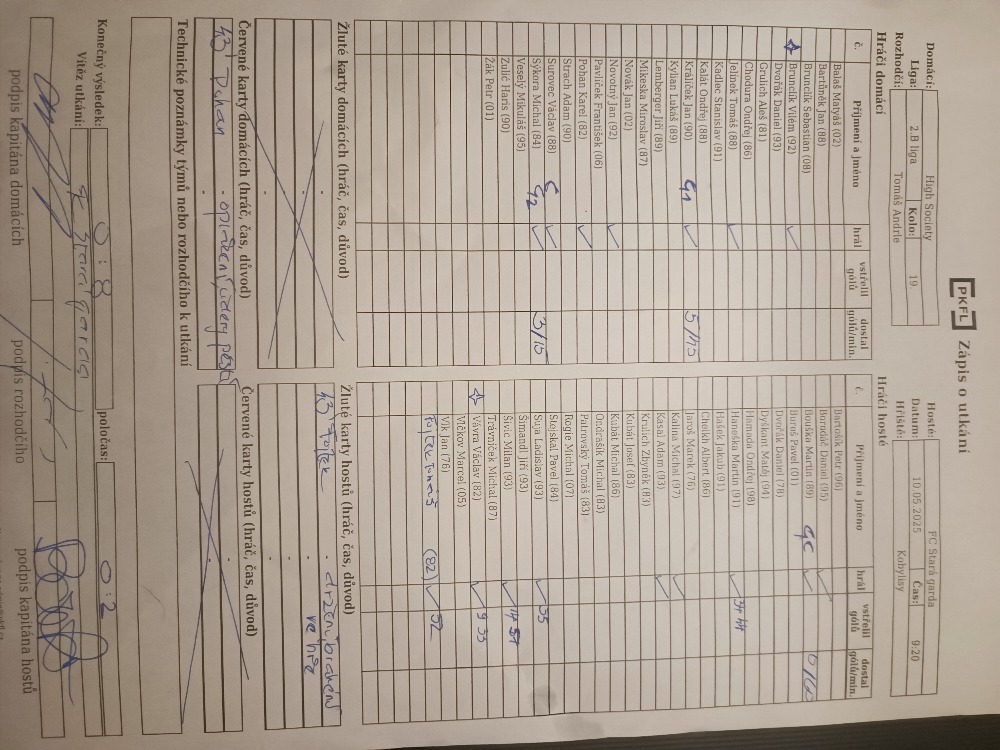 PKFL Zápis o utkání
Domácí: High Society
Hosté: FC Stará garda
Liga: 2.B liga Kolo: 19
Datum: 10.05.2025 Čas: 9:20
Rozhodčí: Tomáš Andrle
Hřiště: Kobylisy
Hráči domácí
č. Příjmení a jméno hrál vstřelil gólů dostal gólů/min.
Balaš Matyáš (02)
Bartůněk Jan (88)
Brunclík Sebastian (08)
Brunclík Vilém (92) ✓
Dvořák Daniel (93)
Grulich Aleš (81)
Chodura Ondřej (86)
Jelínek Tomáš (88) ✓
Kadlec Stanislav (91)
Kalát Ondřej (88)
Králíček Jan (90) G1 ✓ 5/45
Kylian Lukáš (89)
Lemberger Jiří (89)
Mikeska Miroslav (87)
Novák Jan (02)
Novotný Jan (92) ✓
Pavlíček František (06)
Pohan Karel (82) ✓
Strach Adam (90)
Surovec Václav (88) ✓
Sýkora Michal (84) G2 ✓ 3/15
Veselý Mikuláš (95)
Zulić Haris (90)
Žák Petr (01)
Hráči hosté
č. Příjmení a jméno hrál vstřelil gólů dostal gólů/min.
Bartošík Petr (96)
Borondič Daniel (95) ✓
Bouška Martin (89) GC ✓ 0/60
Bureš Pavel (01)
Dvořák Daniel (78)
Dyškant Matěj (94)
Hamada Ondřej (98)
Hanuška Martin (91) ✓ 34 44
Hašek Jakub (91)
Cheikh Albert (86)
Jaroš Marek (76)
Kalina Michal (97) ✓
Kasal Adam (93) ✓
Krulich Zbyněk (83)
Kubát Josef (83)
Kubát Michal (86)
Ondrašík Michal (83)
Patrovský Tomáš (83)
Rogie Michal (07)
Stejskal Pavel (84)
Suja Ladislav (93) ✓ 55
Šimandl Jiří (93)
Šivic Milan (93) ✓ 14 57
Trávníček Michal (87)
Vávra Václav (82) ✓ 9 33
Vlčkov Marcel (05)
Vlk Jan (76)
Fojtek Tomáš (82) ✓ 52
Žluté karty domácích (hráč, čas, důvod)
Žluté karty hostů (hráč, čas, důvod)
43' Fojtek - držení, bránění
ve hře
Červené karty domácích (hráč, čas, důvod)
43' Pohan - oplacení, údery pěstí
Červené karty hostů (hráč, čas, důvod)
Technické poznámky týmů nebo rozhodčího k utkání
Konečný výsledek: 0 : 8 poločas: 0 : 2
Vítěz utkání: FC Stará garda
podpis kapitána domácích podpis rozhodčího podpis kapitána hostů